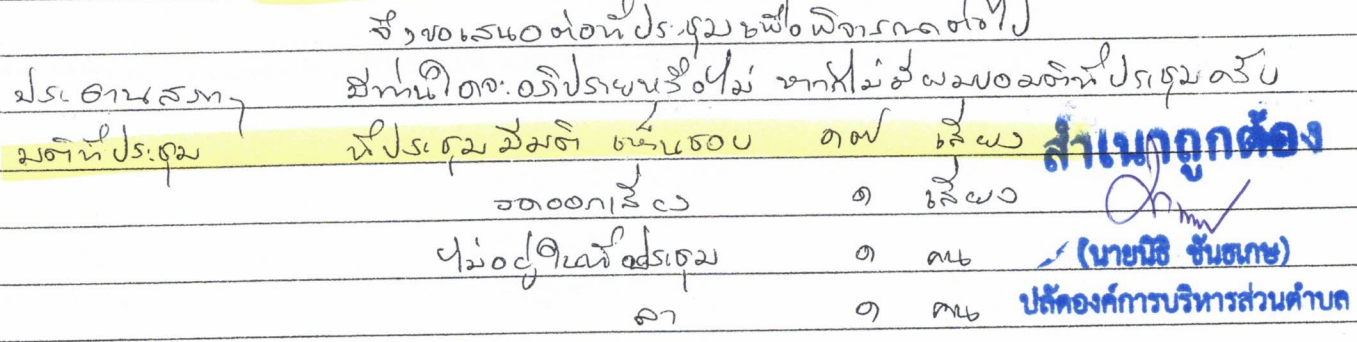 จึงขอเสนอต่อที่ประชุมเพื่อพิจารณาต่อไป
ประธานสภาฯ มีท่านใดจะอภิปรายหรือไม่ หากไม่มีผมขอมติที่ประชุมครับ
มติที่ประชุม ที่ประชุมมีมติ เห็นชอบ ๑๗ เสียง สำเนาถูกต้อง
งดออกเสียง ๑ เสียง
ไม่อยู่ในที่ประชุม ๑ คน (นายนิธิ ขันธเกษ)
ลา ๑ คน ปลัดองค์การบริหารส่วนตำบล